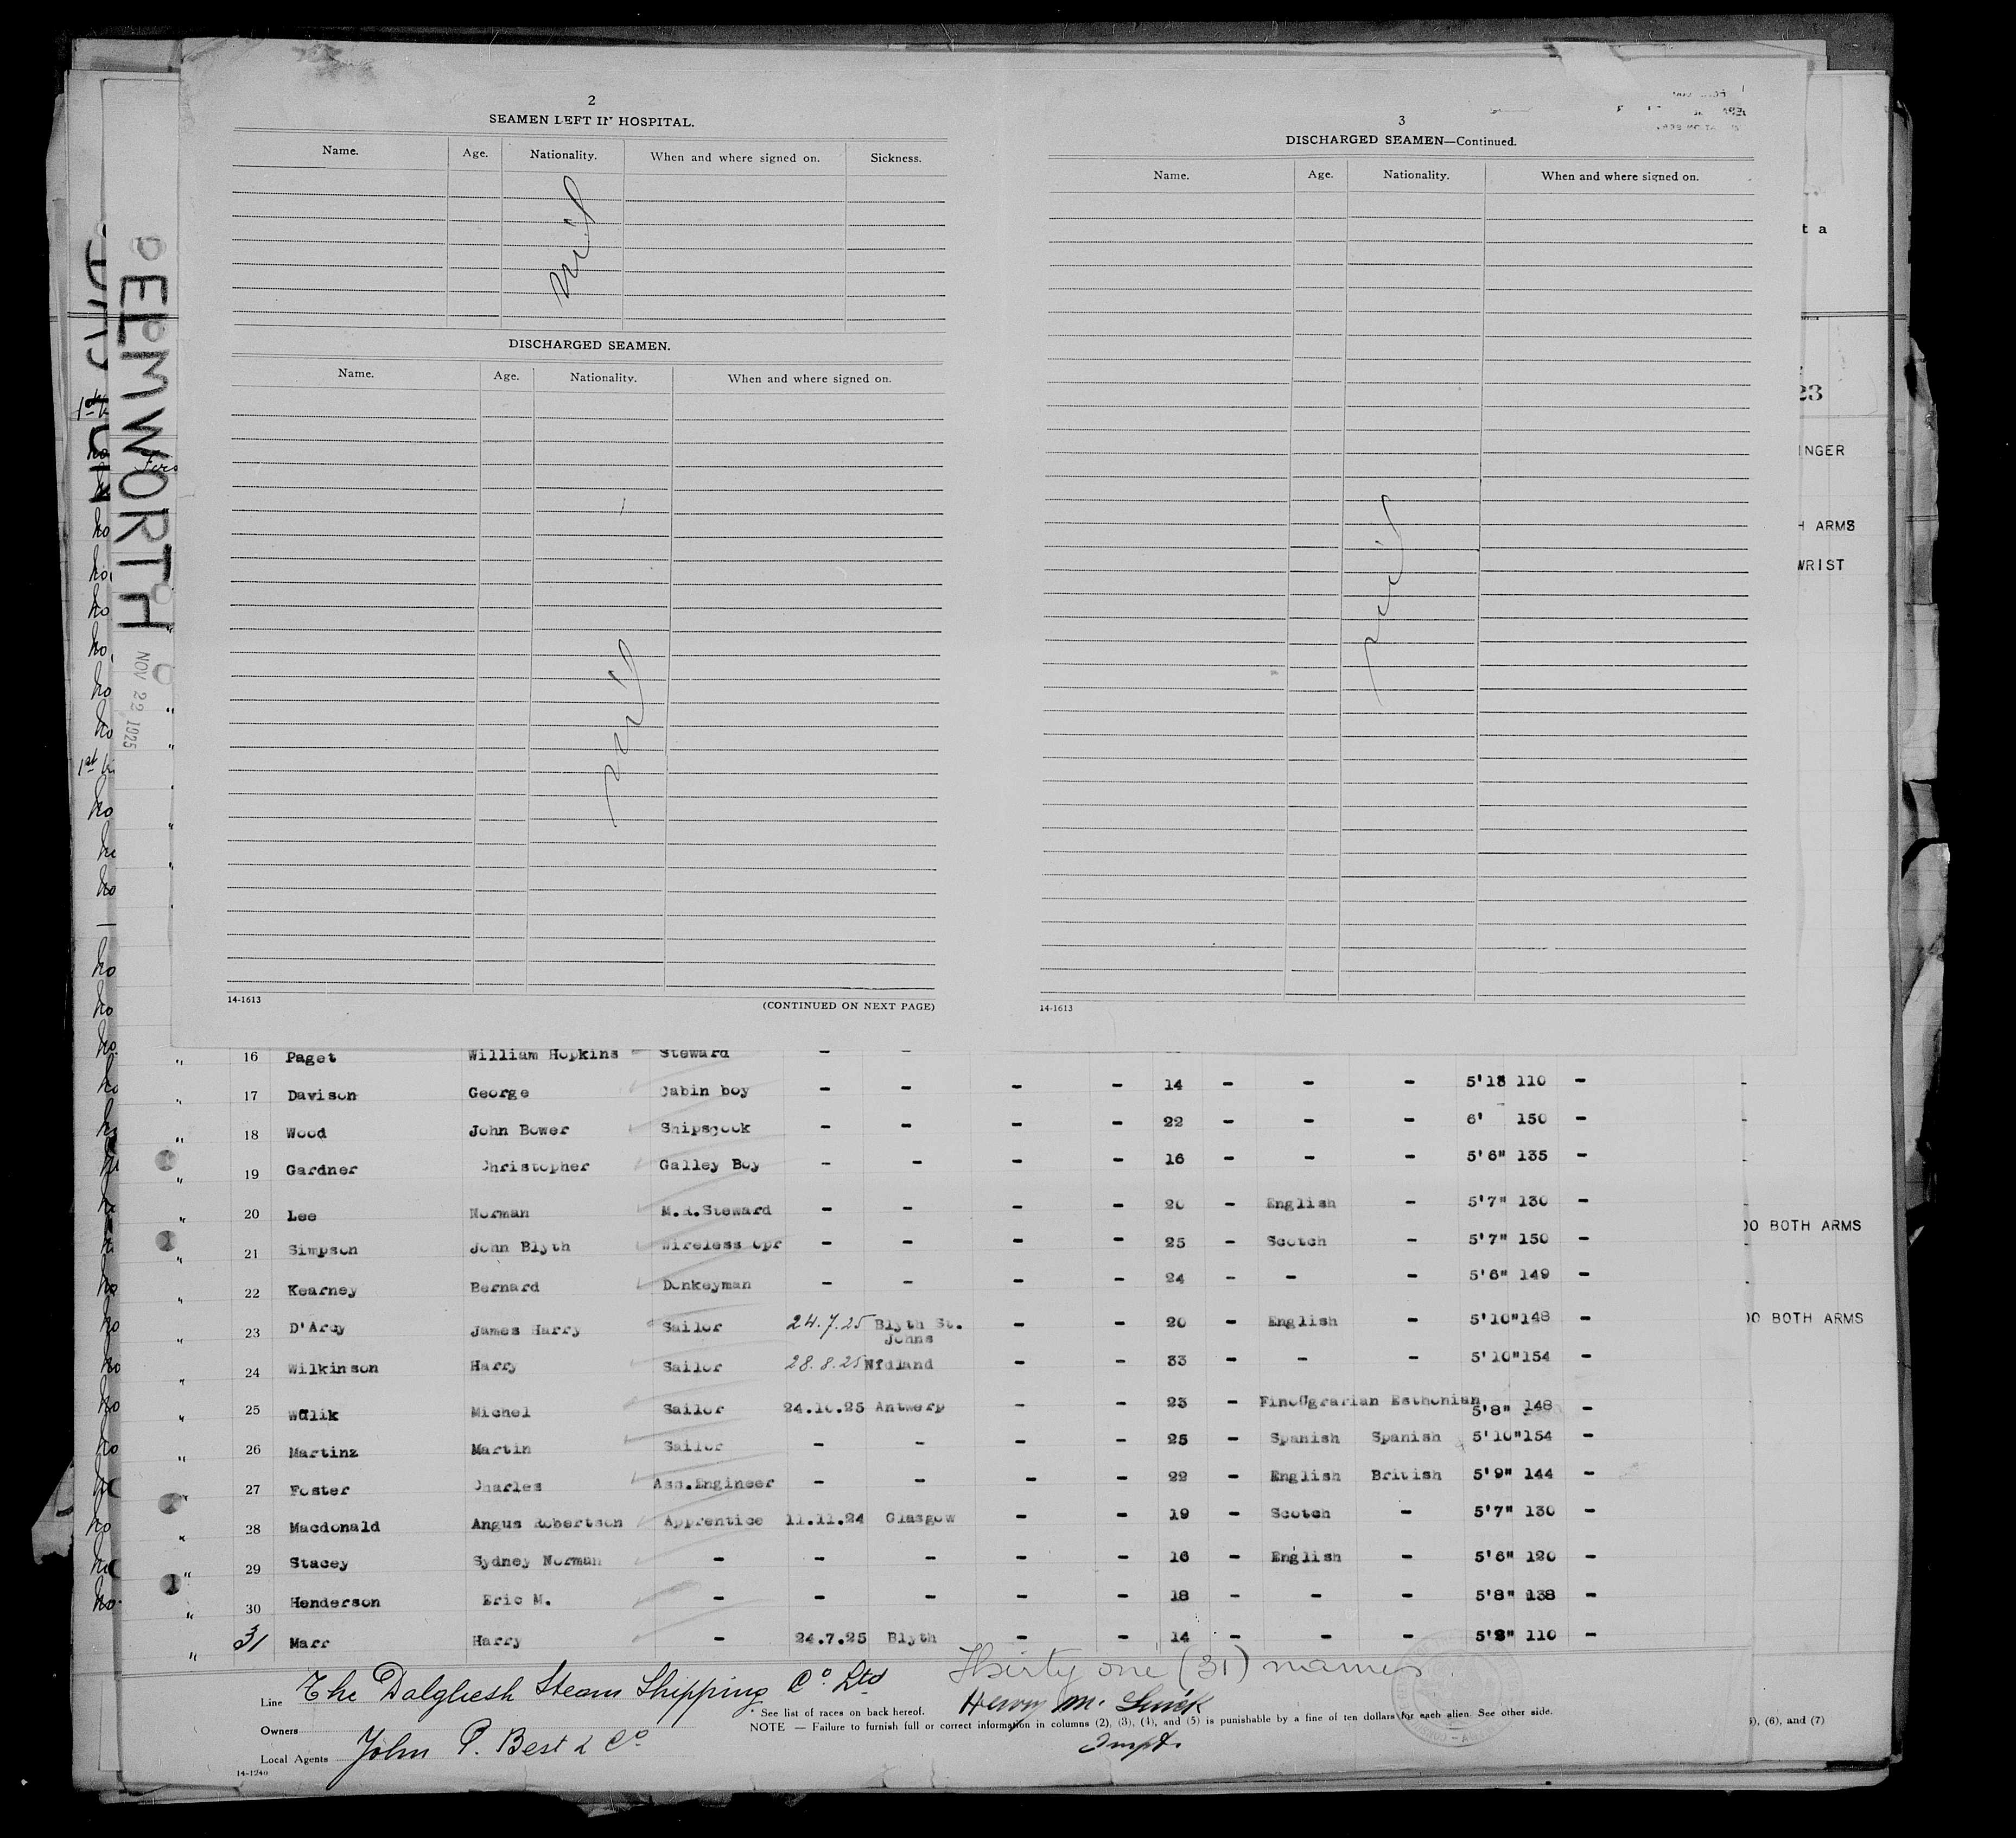 2
SEAMEN LEFT IN HOSPITAL.
Name. Age. Nationality. When and where signed on. Sickness.
nil
DISCHARGED SEAMEN.
Name. Age. Nationality. When and where signed on.
nil
14-1613 (CONTINUED ON NEXT PAGE)
3
DISCHARGED SEAMEN—Continued.
Name. Age. Nationality. When and where signed on.
nil
14-1613
PELMWORTH
NOV 22 1925
t a
23
INGER
H ARMS
WRIST
16 Paget William Hopkins Steward - -
" 17 Davison George Cabin boy - - - - 14 - - - 5'1 110 -
" 18 Wood John Bower Shipscook - - - - 22 - - - 6' 150 -
" 19 Gardner Christopher Galley Boy - - - - 16 - - - 5'6" 135 -
" 20 Lee Norman M.R.Steward - - - - 20 - English - 5'7" 130 -
OO BOTH ARMS
" 21 Simpson John Blyth Wireless Opr - - - - 25 - Scotch - 5'7" 150 -
" 22 Kearney Bernard Donkeyman - - - - 24 - - - 5'6" 149 -
" 23 D'Arcy James Harry Sailor 24.7.25 Blyth St. - - 20 - English - 5'10" 148 -
Johns
OO BOTH ARMS
" 24 Wilkinson Harry Sailor 28.8.25 Nfdland - - 33 - - - 5'10" 154 -
" 25 Wulik Michel Sailor 24.10.25 Antwerp - - 23 - FinoUgrarian Esthonian 5'8" 148 -
" 26 Martinz Martin Sailor - - - - 25 - Spanish Spanish 5'10" 154 -
" 27 Foster Charles Ass.Engineer - - - - 22 - English British 5'9" 144 -
" 28 Macdonald Angus Robertson Apprentice 11.11.24 Glasgow - - 19 - Scotch - 5'7" 130 -
" 29 Stacey Sydney Norman - - - - - 16 - English - 5'6" 120 -
" 30 Henderson Eric M. - - - - - 18 - - - 5'8" 138 -
" 31 Marr Harry - 24.7.25 Blyth - - 14 - - - 5'2" 110 -
Thirty one (31) names
Line The Dalgliesh Steam Shipping Co. Ltd
* See list of races on back hereof. Henry M.
Owners
NOTE — Failure to furnish full or correct information in columns (2), (3), (4), and (5) is punishable by a fine of ten dollars for each alien. See other side.
), (6), and (7)
Local Agents John P. Best & Co
Inspt.
14-1240